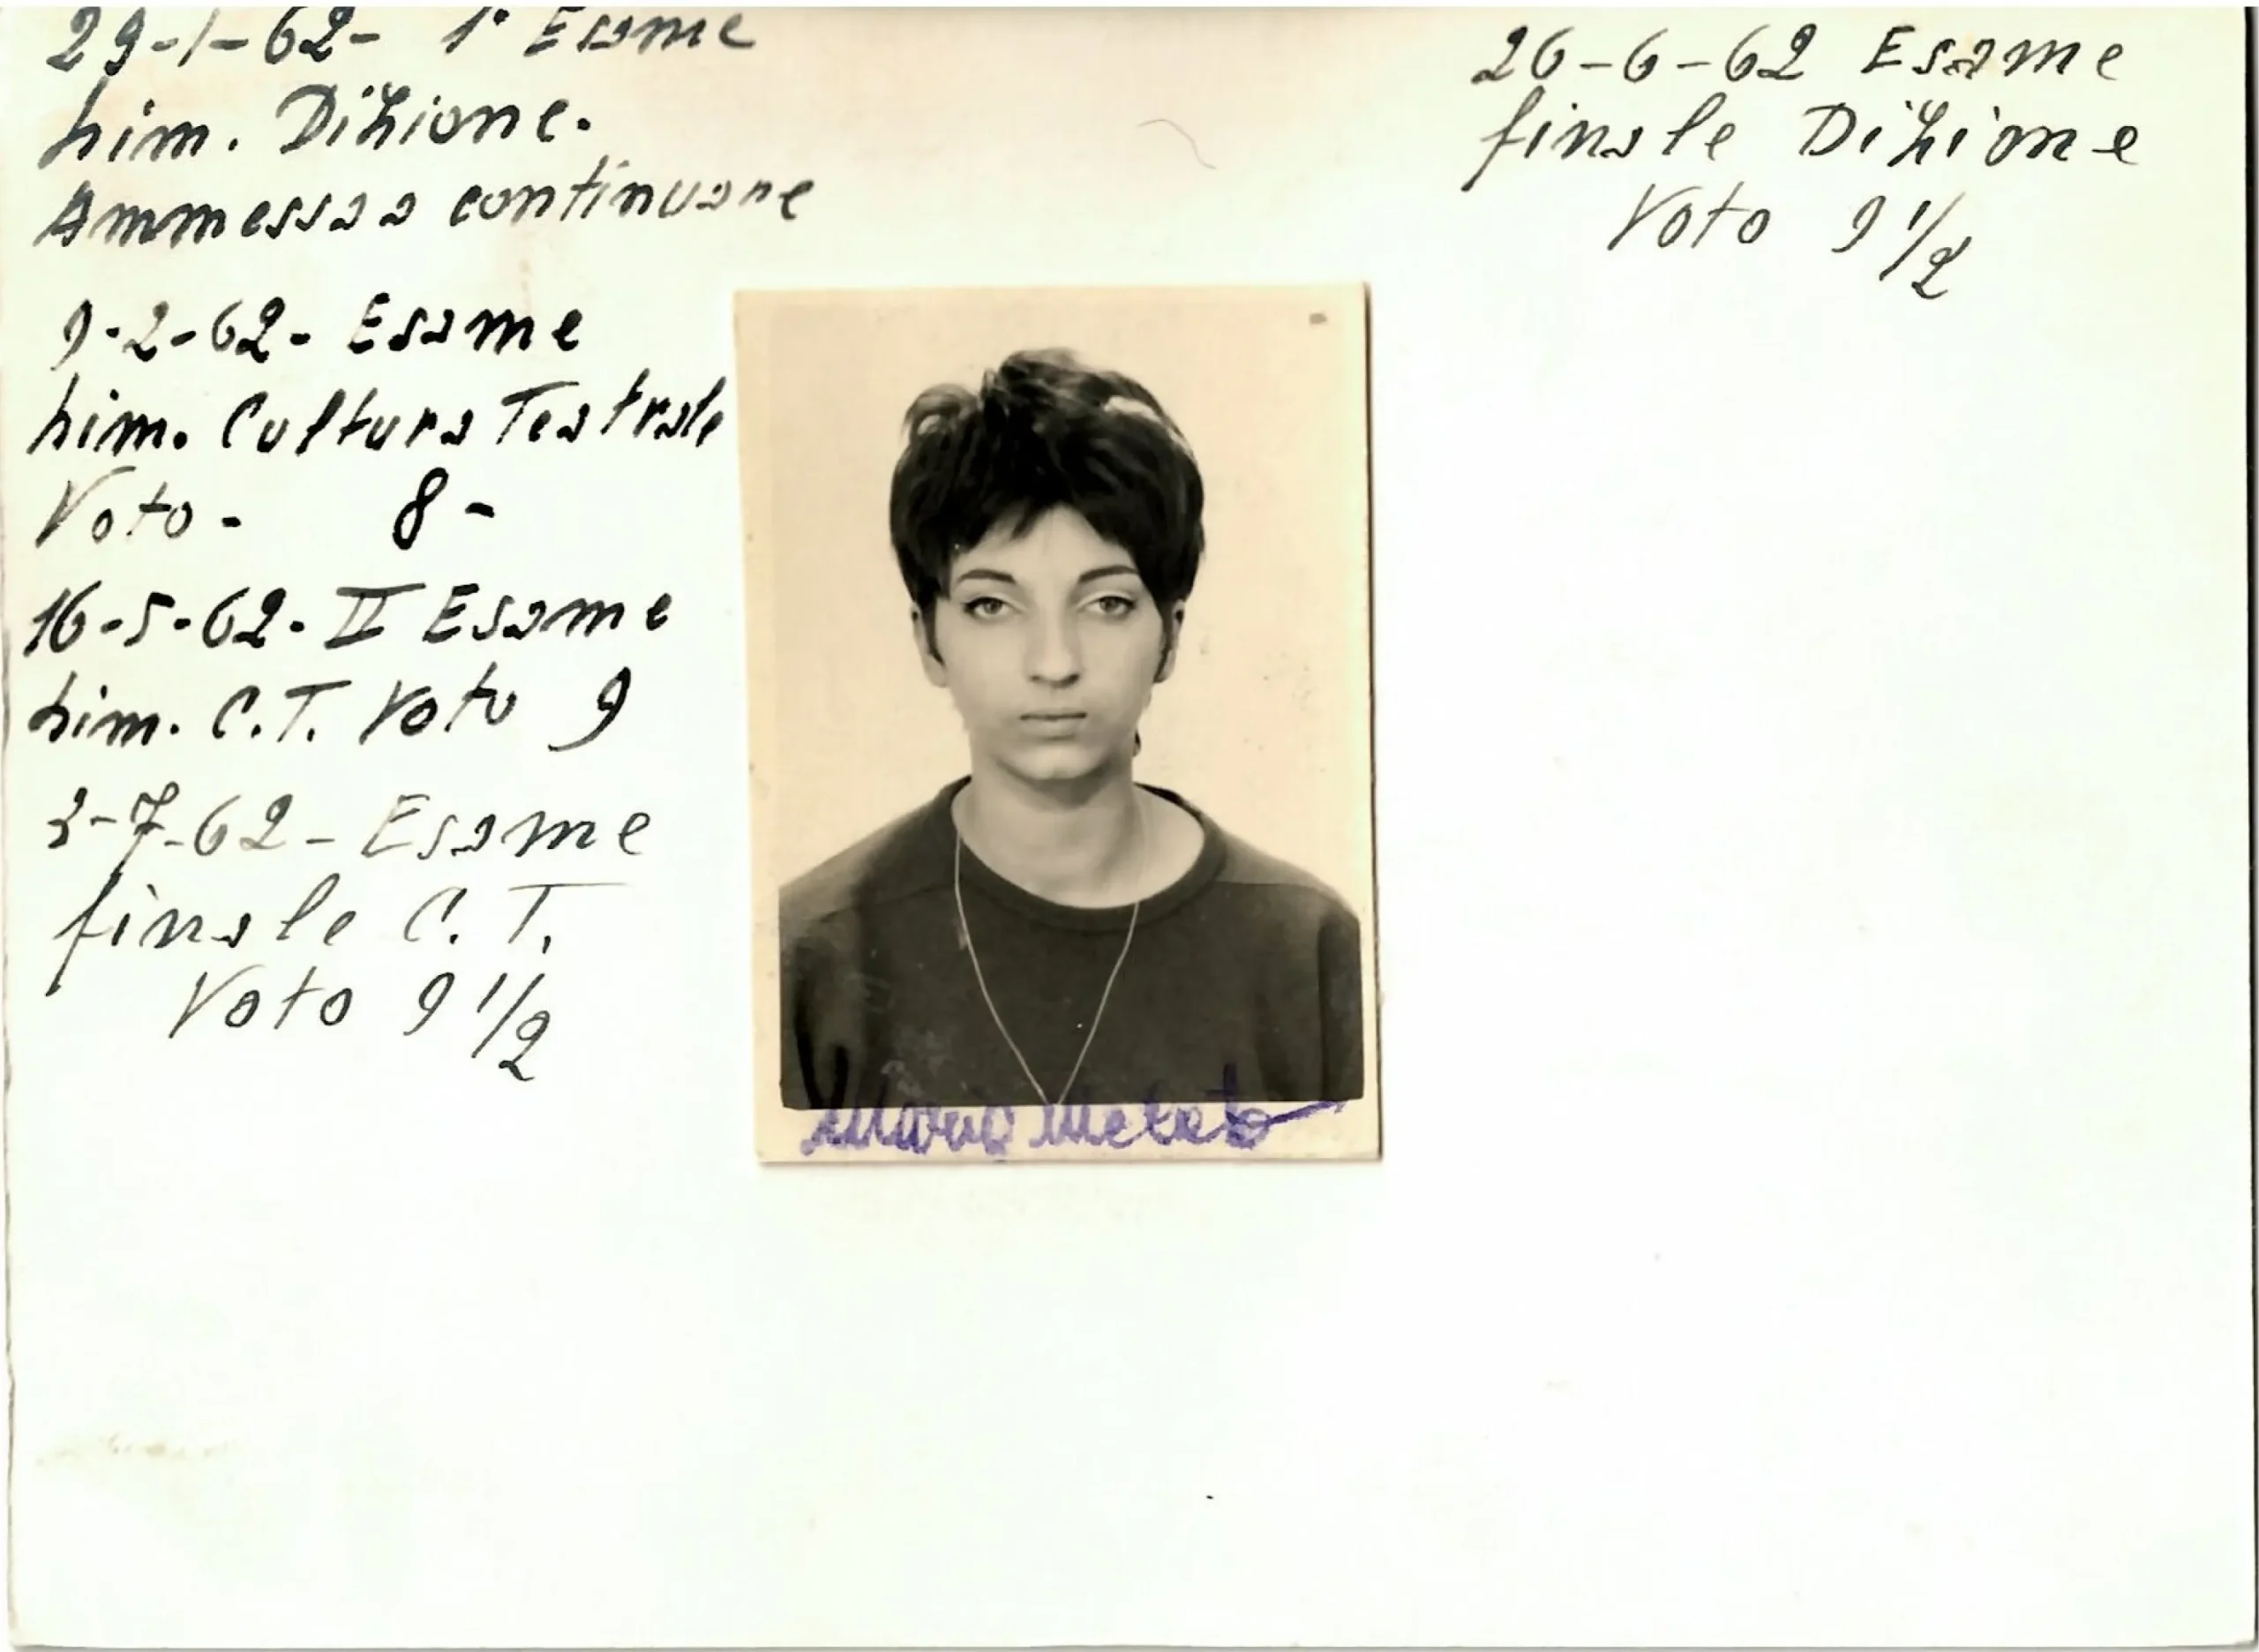 29-1-62- 1° Esame
lim. Dizione.
Ammessa a continuare
9-2-62- Esame
lim. Cultura Teatrale
Voto- 8-
16-5-62- II Esame
lim. C.T. Voto 9
2-7-62- Esame
finale C. T.
Voto 9 1/2
26-6-62 Esame
finale Dizione
Voto 9 1/2